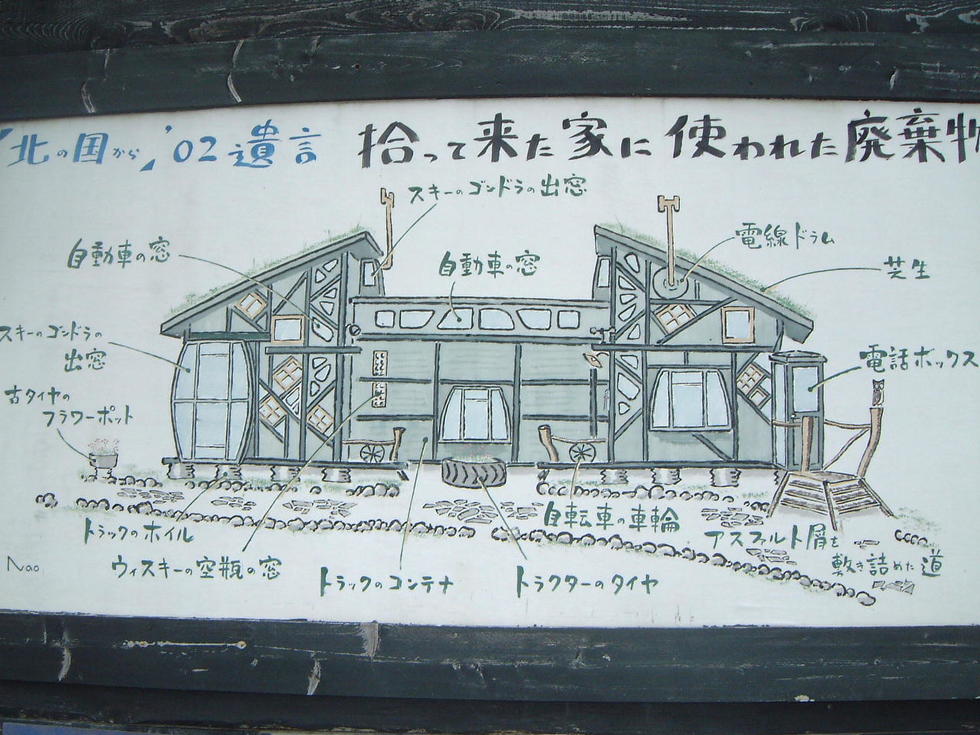 「北の国から」'02遺言 拾って来た家に使われた廃棄物
スキーのゴンドラの出窓
自動車の窓
自動車の窓
電線ドラム
芝生
スキーのゴンドラの
出窓
電話ボックス
古タイヤの
フラワーポット
トラックのホイル
自転車の車輪
アスファルト屑を
敷き詰めた道
ウィスキーの空瓶の窓
トラックのコンテナ
トラクターのタイヤ
Nao